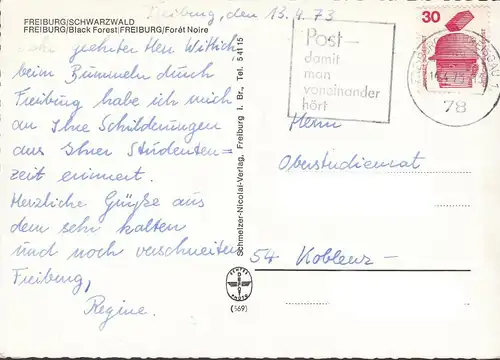 Freiburg, den 13.4.73
FREIBURG/SCHWARZWALD
FREIBURG/Black Forest/FREIBURG/Forêt Noire
Sehr geehrter Herr Wittich
beim Bummeln durch
Freiburg habe ich mich
an Ihre Schilderungen
aus Ihrer Studenten=
zeit erinnert.
Herzliche Grüße aus
dem sehr kalten
und noch verschneiten
Freiburg,
Regine.
Schmelzer-Nicolai-Verlag, Freiburg i. Br., Tel. 5 41 15
(569)
Post-
damit
man
voneinander
hört
30
78
Herrn
Oberstudienrat
54 Koblenz-